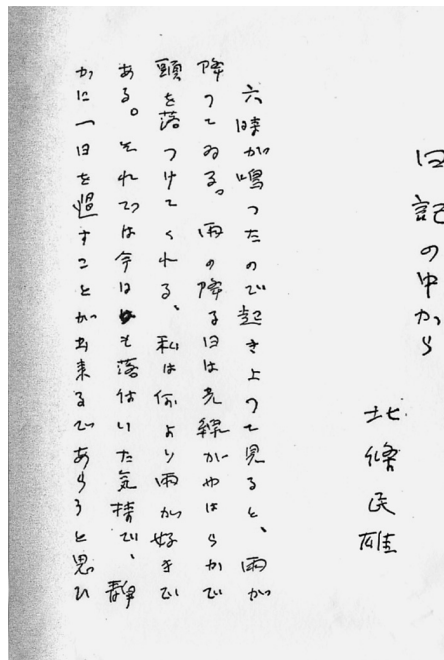 日記の中から
北條民雄
六時が鳴つたので起き上つて見ると、雨が
降つてゐる。雨の降る日は光線がやはらかで
頭を落つけてくれる、私は何より雨が好きで
ある。それでは今日も落付いた気持で、静
かに一日を過すことが出来るであらうと思ひ